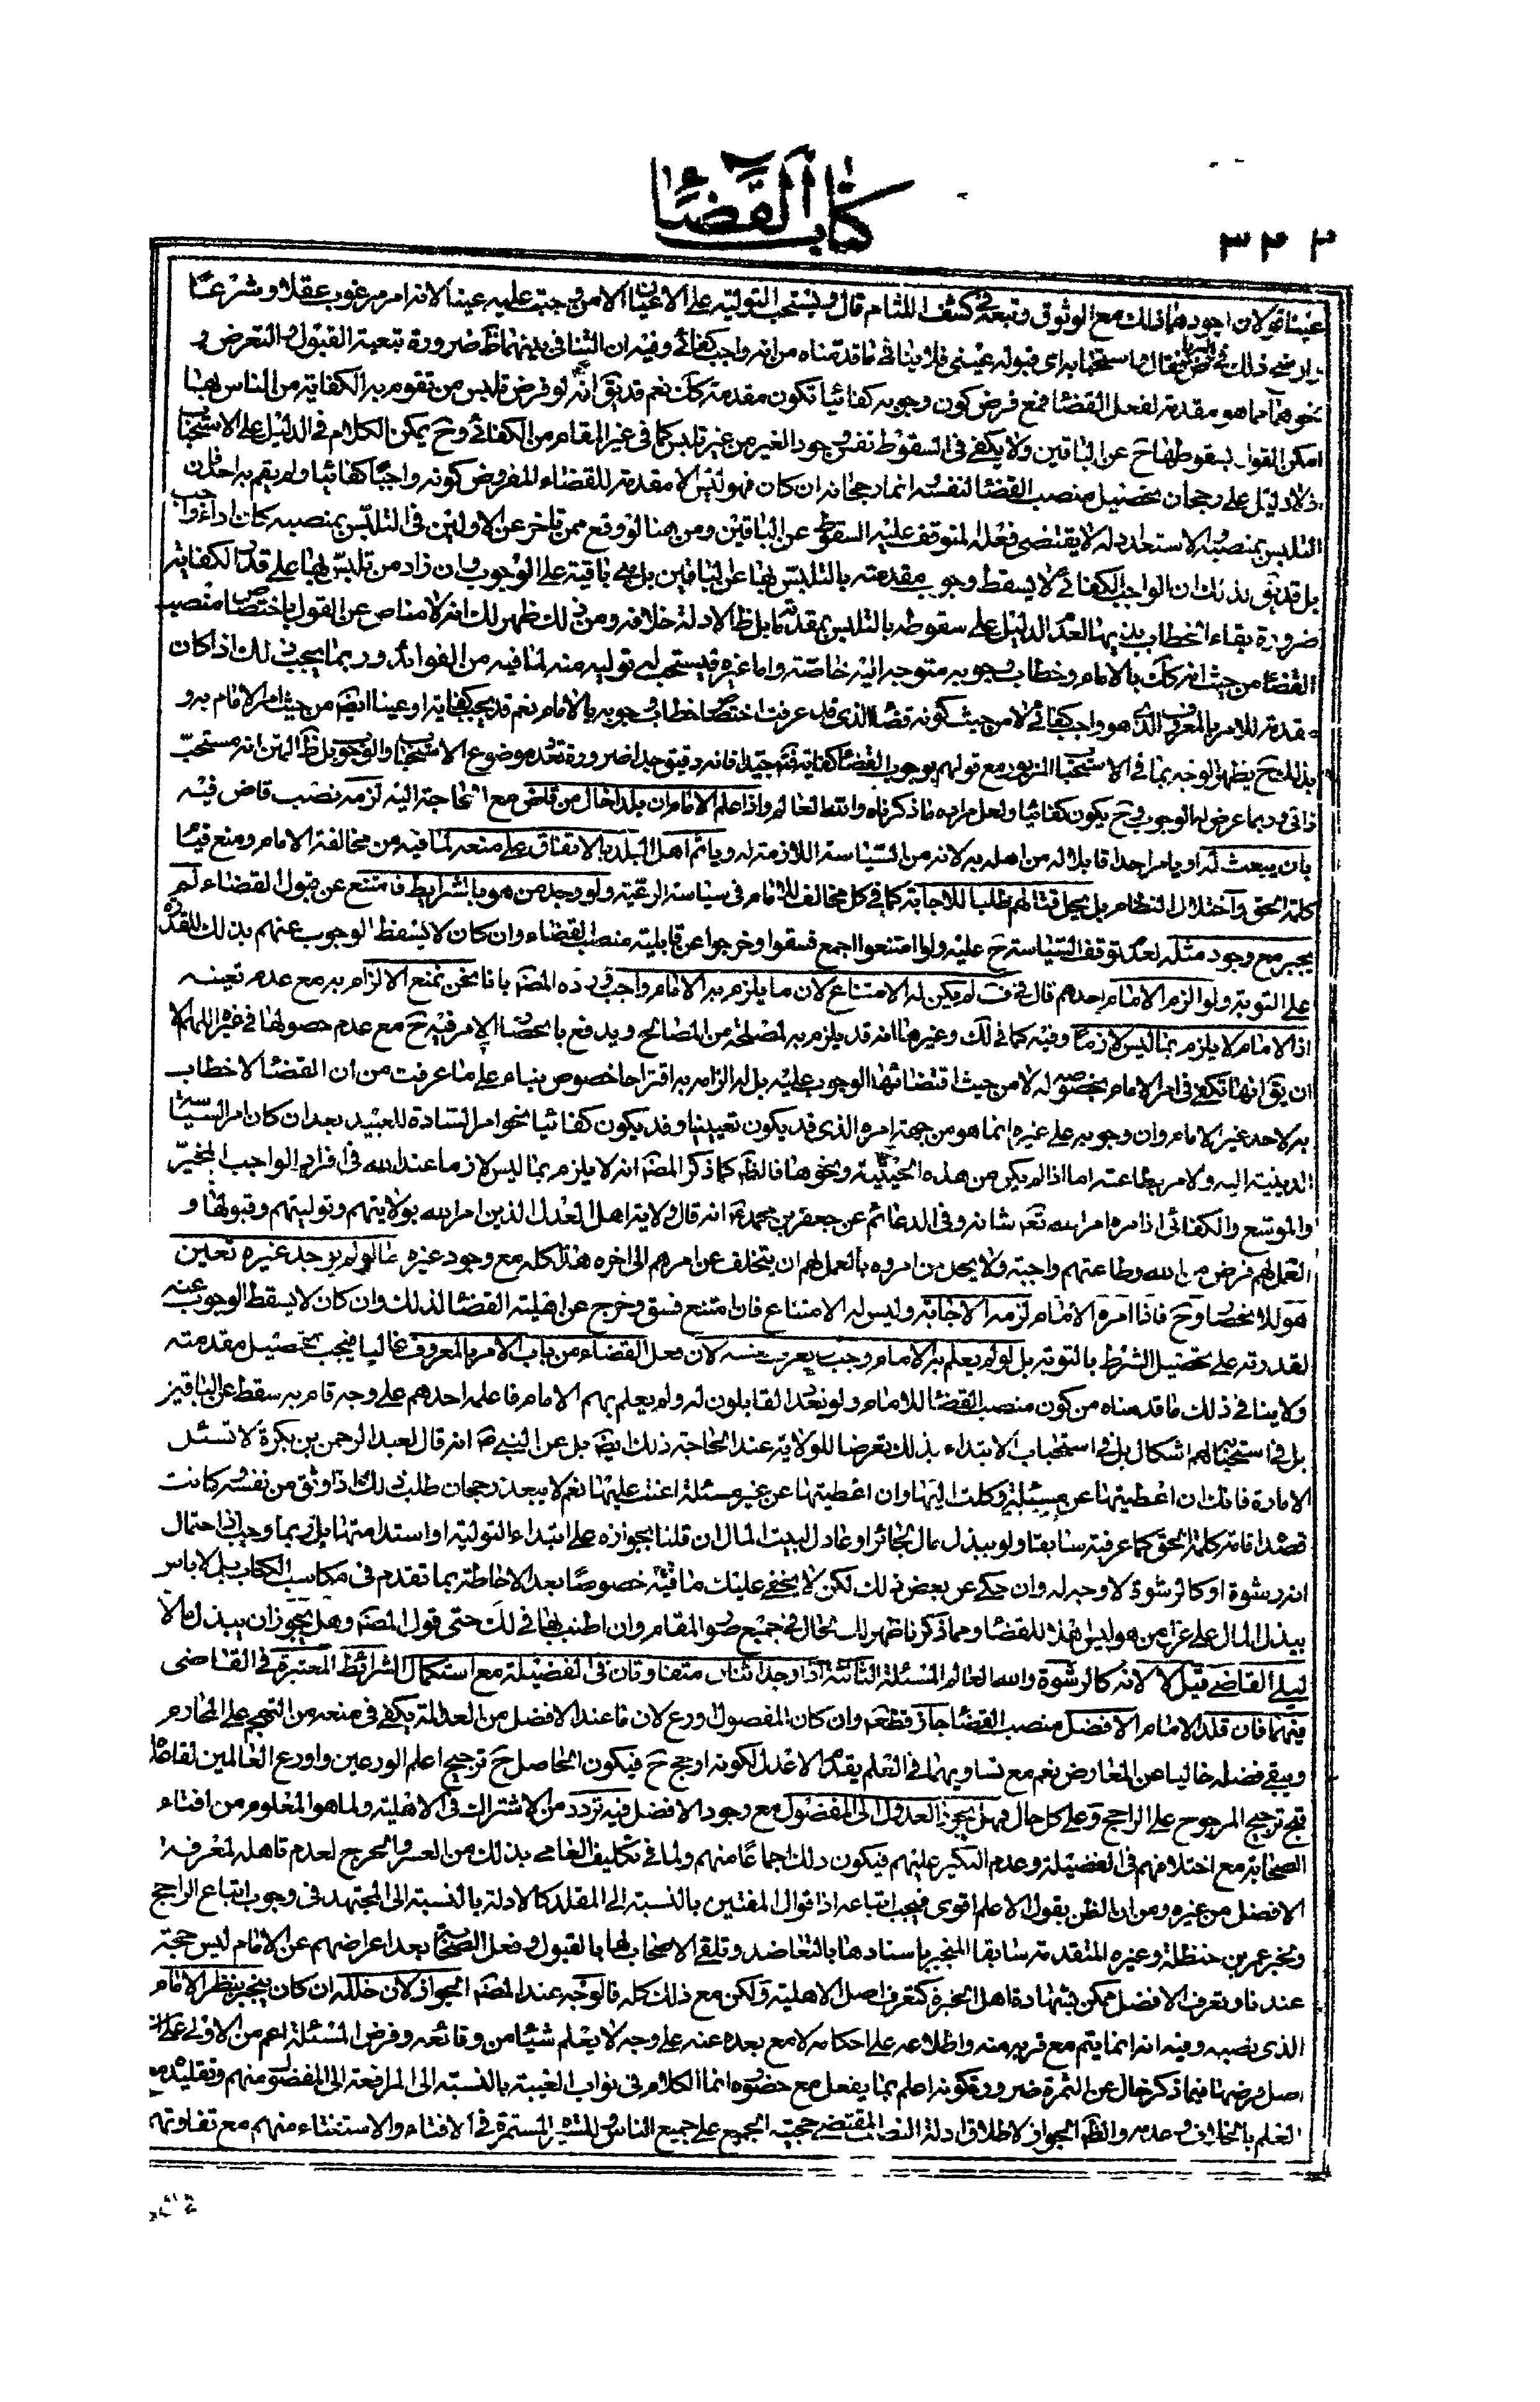 كتاب القضاء
٣٤٢
عيناته لان اجود هما ذلك مع الوثوق وتبعه في كشف اللثام قال ويستحب التولية على الاعيان الا من وجبت عليه عينا لانه امر مرغوب عقلا وشرعا
ذلك في فقال استحبابه اي قبوله عيني فلا ينافي ما قدمناه من انه واجب كفائي وفيه ان التنافي بينهما ظ ضرورة تبعية القبول والتعرض و
نحوهما مما هو مقدمة لفعل القضاء فمع فرض كون وجوبه كفائيا تكون مقدمته كك نعم قد يق انه لو فرض تلبس من تقوم به الكفاية من الناس بها
امكن القول بسقوطها ح عن الباقين ولا يكفي في السقوط نفس وجود الغير من غير تلبس كما في غير المقام من الكفائي وح يمكن الكلام في الدليل على الاستحباب
اذ لا دليل على رجحان تحصيل منصب القضاء لنفسه انما رجحانه ان كان فهو ليس الا مقدمة للقضاء المفروض كونه واجبا كفائيا ولم يقم به احد لان
التلبس بمنصبه الاستعداد له لا يقتضي فعله المتوقف عليه السقوط عن الباقين ومن هنا لو وقع ممن تاخر عن الاولين في التلبس بمنصبه كان اداء واجب
بل قد يق بذلك ان الواجب الكفائي لا يسقط وجوب مقدمته بالتلبس بها عن الباقين بل هي باقية على الوجوب وان زاد من تلبس بها على قدر الكفاية
ضرورة بقاء الخطاب بذيها لعدم الدليل على سقوطه بالتلبس بمقدمته بل ظ الادلة خلافه ومن ذلك ظهر لك انه لا مناص عن القول باختصاص منصب
القضاء من حيث انه كك بالامام وخطاب وجوبه متوجه اليه خاصة واما غيره فيستحب له توليه منه لما فيه من الفوائد وربما يجب ذلك اذا كان
مقدمة للامر بالمعروف الذي هو واجب كفائي لا من حيث كونه قضاء الذي قد عرفت اختصاص خطاب وجوبه بالامام نعم قد يجب كفاية او عينا ايضا من حيث امر الامام به و
بذلك ح يظهر لوجه بما في الاستحباب المزبور مع قولهم بوجوب القضاء كفاية فتم جيدا فانه دقيق جدا ضرورة تعدد موضوع الاستحباب والوجوب بل ظ المتن انه مستحب
ذاتي وربما عرض له الوجوب وح يكون كفائيا ولعل مراده ما ذكرناه والله العالم واذا علم الامام ان بلدا خال من قاض مع الحاجة اليه لزمه نصب قاض فيه
بان يبعث له او يامر احدا قابلا له من اهله به لانه من السياسة اللازمة له وياثم اهل البلد بالاتفاق على منعه لما فيه من مخالفة الامام ومنع قيام
كلمة الحق واختلال النظام بل يحل قتالهم طلبا للاجابة كما في كل مخالف للامام في سياسة الرعية ولو وجد من هو بالشرايط فامتنع عن قبول القضاء لم
يجبر مع وجود مثله لعدم توقف السياسة ح عليه ولو امتنعوا اجمع فسقوا وخرجوا عن قابلية منصب القضاء وان كان لا يسقط الوجوب عنهم بذلك للقدرة
على التوبة ولو الزم الامام احدهم قال في ف لم يكن له الامتناع لان ما يلزم به الامام واجب ورده المصنف بانا نحن نمنع الالزام به مع عدم تعينه
اذ الامام لا يلزم بما ليس لازما وفيه كما في لك وغيرها انه قد يلزم به لمصلحة من المصالح ويدفع بانحصار الامر فيه ح مع عدم حصولها في غيره اللهم الا
ان يق انها تكفي في امر الامام بخصوصه له لا من حيث اقتضائها الوجوب عليه بل له الزامه به اقتراحا خصوص بناء على ما عرفت من ان القضاء لا خطاب
به لاحد غير الامام وان وجوبه على غيره انما هو من جهة امره الذي قد يكون تعيينيا وقد يكون كفائيا نحو امر السادة للعبيد بعد ان كان امر السياسة
الدينية اليه والامر بطاعته اما اذا لم يكن من هذه الحيثية ونحوها فالظ كما ذكر المصنف انه لا يلزم بما ليس لازما عند الله في افراد الواجب المخير
والموسع والكفائي اذ امره امر الله تعالى شانه وفي الدعائم عن جعفر بن محمد انه قال ولاية اهل العدل الذين امر الله بولايتهم وتوليتهم وقبولها و
العمل لهم فرض من الله وطاعتهم واجبة ولا يحل لمن امروه بالعمل لهم ان يتخلف عن امرهم الى اخره هذا كله مع وجود غيره اما لو لم يوجد غيره تعين
هو للانحصار وح فاذا امره الامام لزمه الاجابة وليس له الامتناع فان امتنع فسق وخرج عن اهلية القضاء لذلك وان كان لا يسقط الوجوب عنه
لقدرته على تحصيل الشرط بالتوبة بل لو لم يعلم به الامام وجب تعريف نفسه لان فعل القضاء من باب الامر بالمعروف غالبا فيجب تحصيل مقدمته
ولا ينافي ذلك ما قدمناه من كون منصب القضاء للامام ولو تعدد القابلون له ولم يعلم بهم الامام فاعلمه احدهم على وجه قام به سقط عن الباقين
بل في استحبابه لهم اشكال بل في استحباب الابتداء بذلك تعرضا للولاية عند الحاجة ذلك ايضا بل عن النبي ص انه قال لعبد الرحمن بن بكرة لا تسئل
الامارة فانك ان اعطيتها عن مسئلة وكلت اليها وان اعطيتها عن غير مسئلة اعنت عليها نعم لا يبعد رجحان طلب ذلك اذا وثق من نفسه كانت
قصد اقامة كلمة الحق كما عرفته سابقا ولو ببذل مال الجائر او عادل لبيت المال ان قلنا بجوازه على ابتداء التولية او استدامتها بل ربما وجب في احتمال
انه رشوة او كالرشوة لا وجه له وان حكي عن بعض ذلك لكن لا يخفى عليك ما فيه خصوصا بعد الاحاطة بما تقدم في مكاسب الكتاب بل لا باس
ببذل المال على عزل من هو ليس اهلا للقضاء ومما ذكرنا ظهر لك الحال في جميع صور المقام وان اطنب بها في لك حتى قول المصنف وهل يجوز ان يبذل مالا
ليلي القضاء قيل لا لانه كالرشوة والله العالم المسئلة الثانية اذا وجد اثنان متفاوتان في الفضيلة مع استكمال الشرائط المعتبرة في القاضي
فيهما فان قلد الامام الافضل منصب القضاء جاز قطعا وان كان المفضول اورع لان ما عند الافضل من العدالة يكفي في منعه من التهجم على المحارم
ويبقى فضله خاليا عن المعارض نعم مع تساويهما في العلم يقدم الاعدل لكونه ارجح ح فيكون الحاصل ح ترجيح اعلم الورعين واورع العالمين لقاعدة
قبح ترجيح المرجوح على الراجح وعلى كل حال فهل يجوز العدول الى المفضول مع وجود الافضل فيه تردد من الاشتراك في الاهلية ولما هو المعلوم من افتاء
الصحابة مع اختلافهم في الفضيلة وعدم النكير عليهم فيكون ذلك اجماعا منهم ولما في تكليف العامي بذلك من العسر والحرج لعدم تاهله لمعرفة
الافضل من غيره ومن ان الظن بقول الاعلم اقوى فيجب اتباعه اذ اقوال المفتين بالنسبة الى المقلد كالادلة بالنسبة الى المجتهد في وجوب اتباع الراجح
ولخبر عمر بن حنظلة وغيره المتقدمة سابقا المنجبر اسنادها بالتعاضد وتلقي الاصحاب لها بالقبول وفعل الصحابة بعد اعراضهم عن الامام ليس حجة
عندنا وتعرف الافضل ممكن بشهادة اهل الخبرة كتعرف اصل الاهلية ولكن مع ذلك كله فالوجه عند المصنف الجواز لان خلله ان كان ينجبر بنظر الامام
الذي نصبه وفيه انه انما يتم مع قربه منه واطلاعه على احكامه لا مع بعده عنه على وجه لا يعلم شيئا من وقائعه وفرض المسئلة اعم من الاول على ان
اصل فرضها فيما ذكر خال عن الثمرة ضرورة كونه اعلم بما يفعل مع حضوره انما الكلام في نواب الغيبة بالنسبة الى المرافعة الى المفضول منهم وتقليده مع
العلم بالخلاف وعدمه والظ الجواز لاطلاق ادلة النصب المقتضي حجية الجميع على جميع الناس وللسيرة المستمرة في الافتاء والاستفتاء منهم مع تفاوتهم